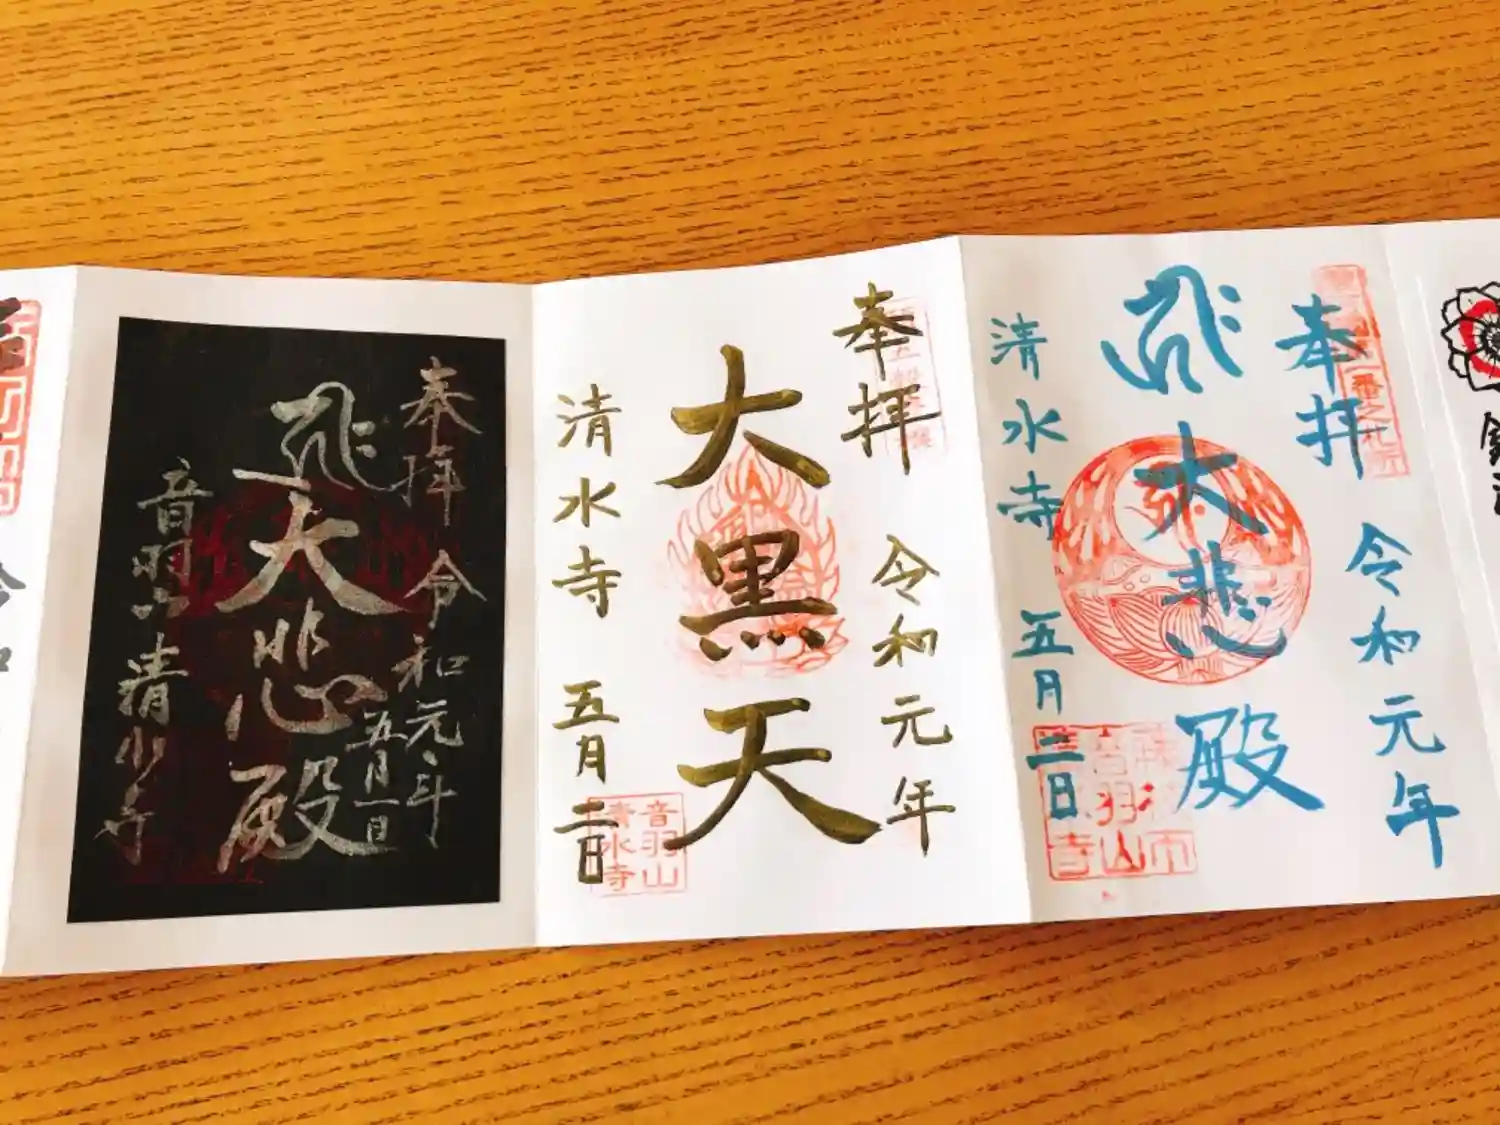 奉拝
令和元年
五月一日
大悲殿
音羽山
清水寺
奉拝
令和元年
大黒天
清水寺
五月二日
音羽山
清水寺
奉拝
令和元年
大悲殿
清水寺
五月二日
音羽山